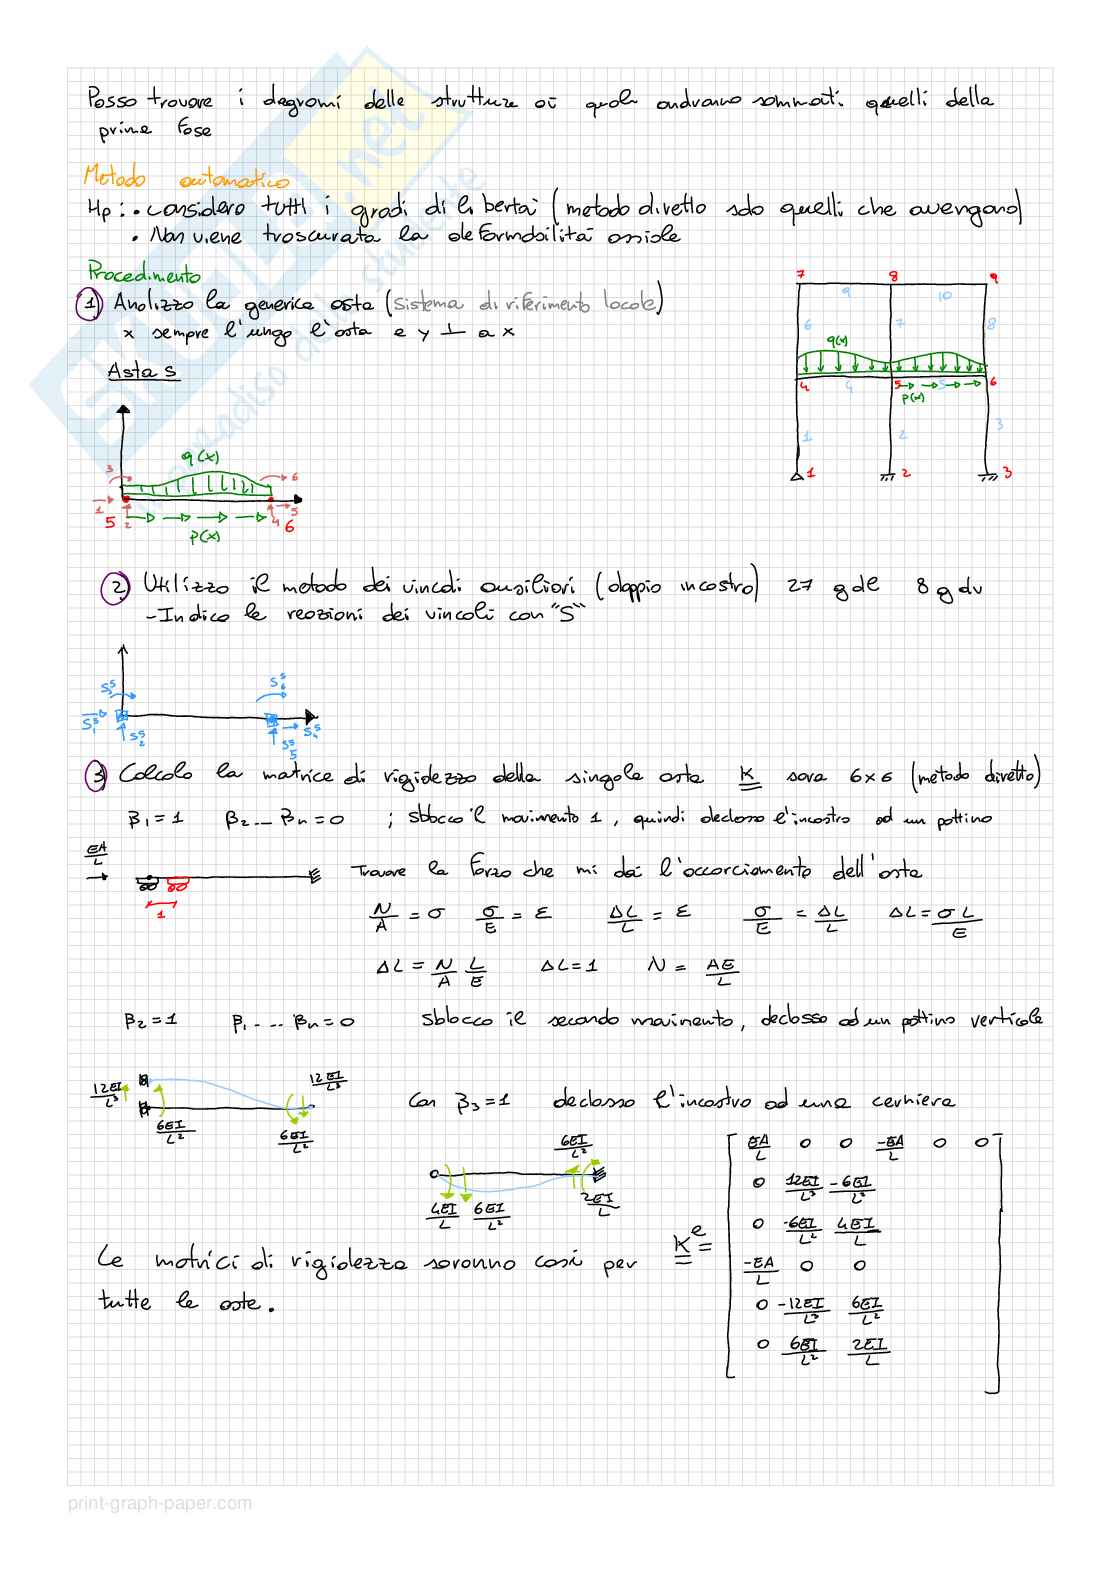 Posso trovare i diagrammi delle strutture ai quali andranno sommati quelli della
prima fase
Metodo automatico
Hp: • considero tutti i gradi di libertà (metodo diretto solo quelli che avengano)
• Non viene trascurata la deformabilità assiale
Procedimento
① Analizzo la generica asta (Sistema di riferimento locale)
x sempre l'ungo l'asta e y ⊥ a x
Asta 5
7 8 9
9 10
6 7 8
q(x)
4 4 5 5 6
p(x)
1 2 3
1 2 3
q(x)
3 6
1 2 4 5
5 6
p(x)
② Utilizzo il metodo dei vincoli ausiliari (doppio incastro) 27 gdl 8 gdv
- Indico le reazioni dei vincoli con "S"
S₃⁵ S₆⁵
S₁⁵ S₂⁵ S₅⁵ S₄⁵
③ Calcolo la matrice di rigidezza della singola asta K sarà 6x6 (metodo diretto)
β₁=1 β₂... βn=0 ; sblocco il movimento 1, quindi declasso l'incastro ad un pattino
EA/L
1
Trovare la forza che mi dà l'accorciamento dell'asta
N/A = σ σ/E = ε ΔL/L = ε σ/E = ΔL/L ΔL = σL/E
ΔL = N/A L/E ΔL=1 N = AE/L
β₂=1 β₁... βn=0 sblocco il secondo movimento, declasso ad un pattino verticale
12EI/L³ 12EI/L³
6EI/L² 6EI/L²
Con β₃=1 declasso l'incastro ad una cerniera
6EI/L²
4EI/L 6EI/L² 2EI/L
Le matrici di rigidezza saranno così per
tutte le aste.
Kᵉ=
EA/L 0 0 -EA/L 0 0
0 12EI/L³ -6EI/L²
0 -6EI/L² 4EI/L
-EA/L 0 0
0 -12EI/L³ 6EI/L²
0 6EI/L² 2EI/L
print-graph-paper.com